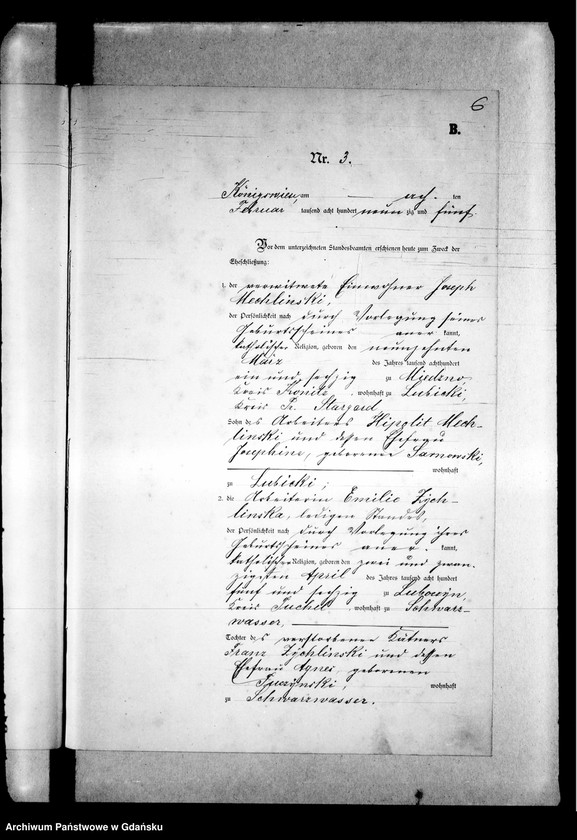 6
B.
Nr. 3.
Königswiese, am ach. ten
Februar tausend acht hundert neun zig und fünf
Vor dem unterzeichneten Standesbeamten erschienen heute zum Zweck der
Eheschließung:
1. der verwitwete Einwohner Joseph
Mechlinski,
der Persönlichkeit nach durch Vorlegung seines
Geburtsscheines aner kannt,
katholischer Religion, geboren den neunzehnten
März des Jahres tausend achthundert
ein und sechzig zu Miedzno,
Kreis Konitz, wohnhaft zu Lubicki,
Kreis Pr. Stargard
Sohn des Arbeiters Hipolit Mech-
linski und dessen Ehefrau
Josephine, geborener Sarnowski,
wohnhaft
zu Lubicki;
2. die Arbeiterin Emilie Zych-
linska, ledigen Standes,
der Persönlichkeit nach durch Vorlegung ihres
Geburtsscheines aner. kannt,
katholischer Religion, geboren den zwei und zwan-
zigsten April des Jahres tausend acht hundert
fünf und sechzig zu
Kreis Tuchel, wohnhaft zu Schwarz-
wasser,
Tochter des verstorbenen Käthners
Franz Zychlinski und dessen
Ehefrau Agnes, geborenen
wohnhaft
zu Schwarzwasser.
Archiwum Państwowe w Gdańsku